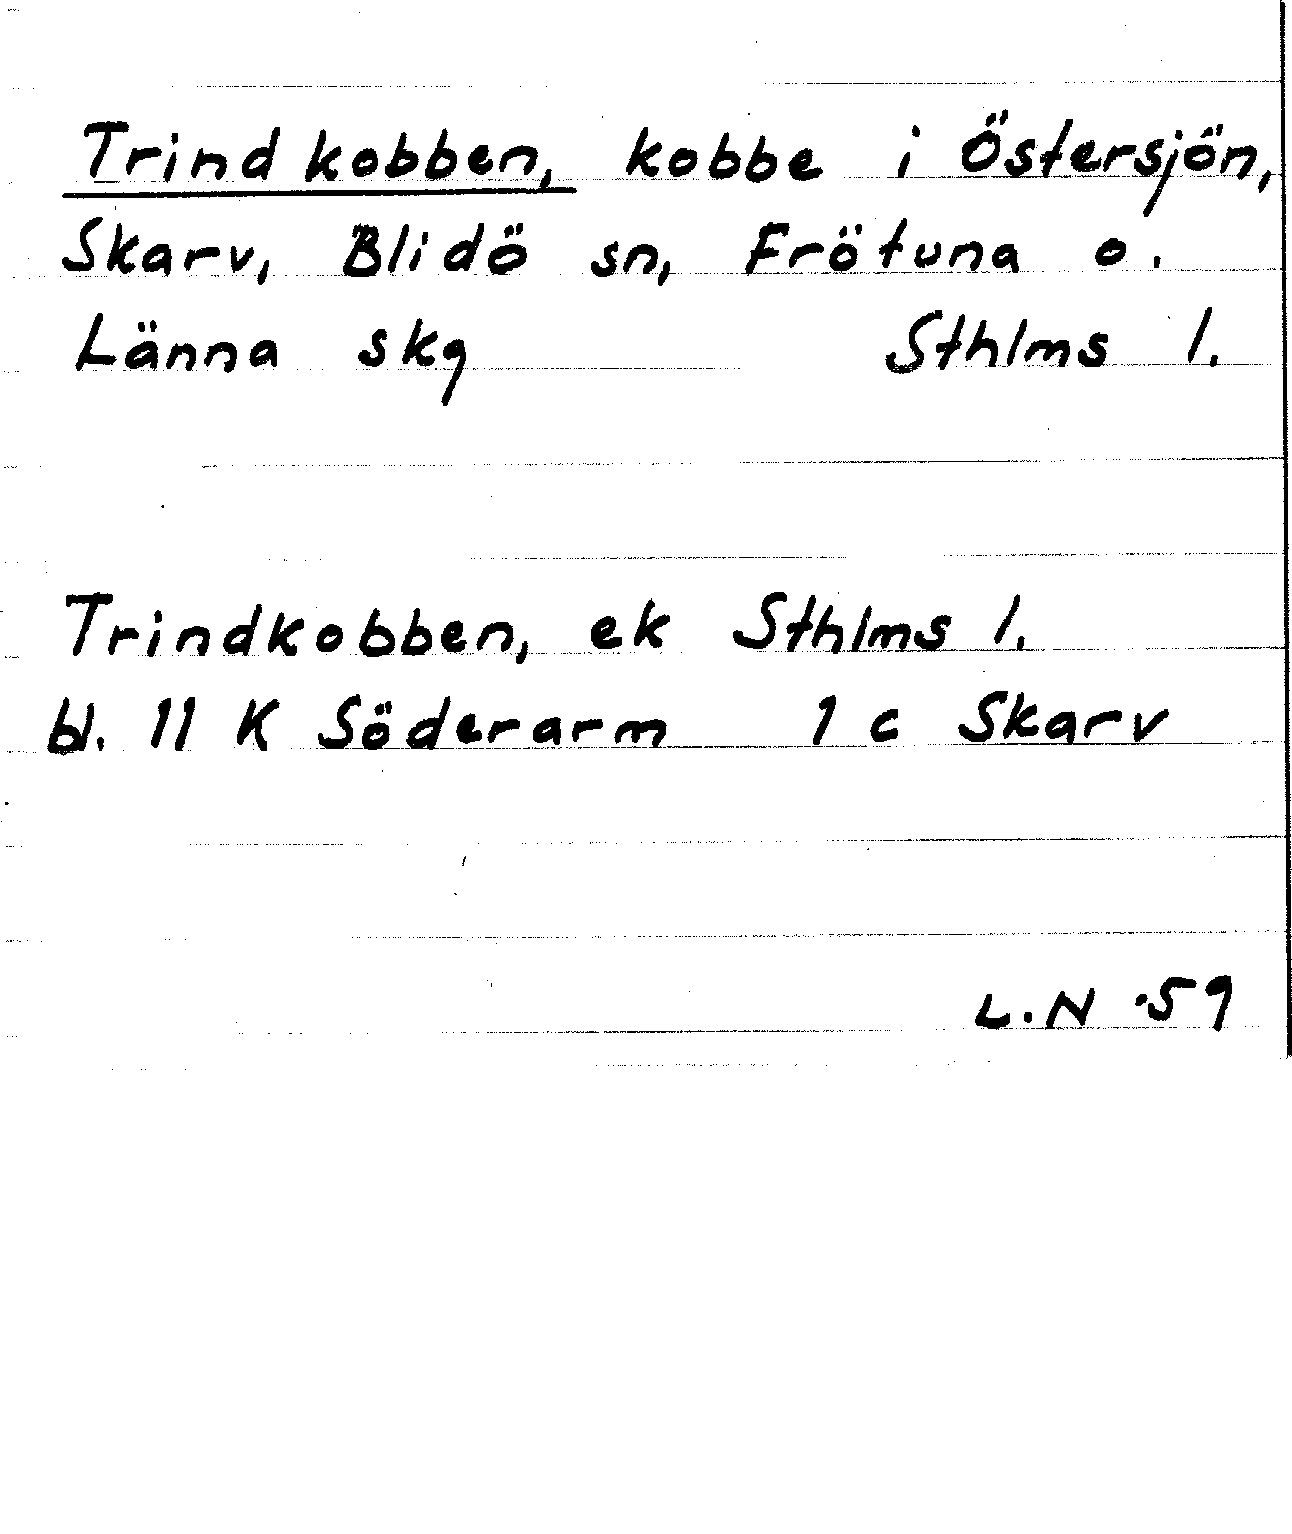 Trindkobben, kobbe i Östersjön,
Skarv, Blidö sn, Frötuna o.
Länna skg Sthlms l.
Trindkobben, ek Sthlms l.
bl. 11 K Söderarm 1 c Skarv
L.N. 59